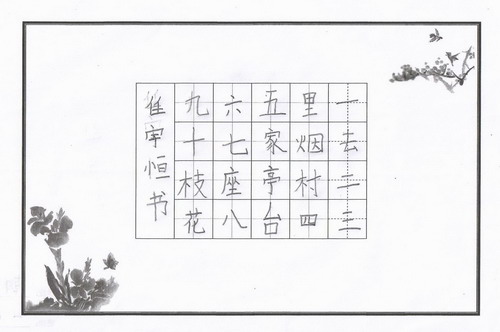 一去二三
里烟村四
五家亭台
六七座八
九十枝花
崔宇恒书